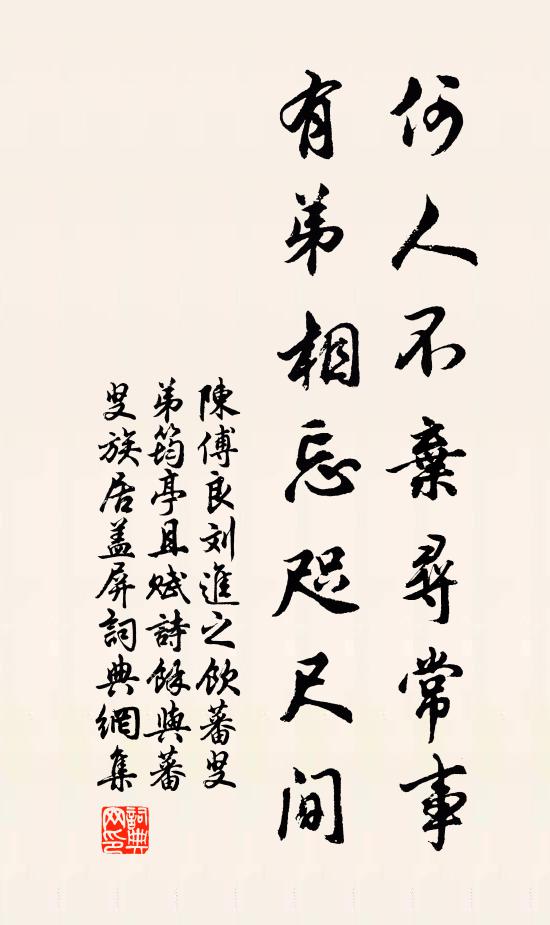 何人不棄尋常事
有弟相忘咫尺間
陳傅良刘進之飲蕃叟
弟筠亭且賦詩餘與蕃
叟族居盖屏詞典網集
詞典
网印